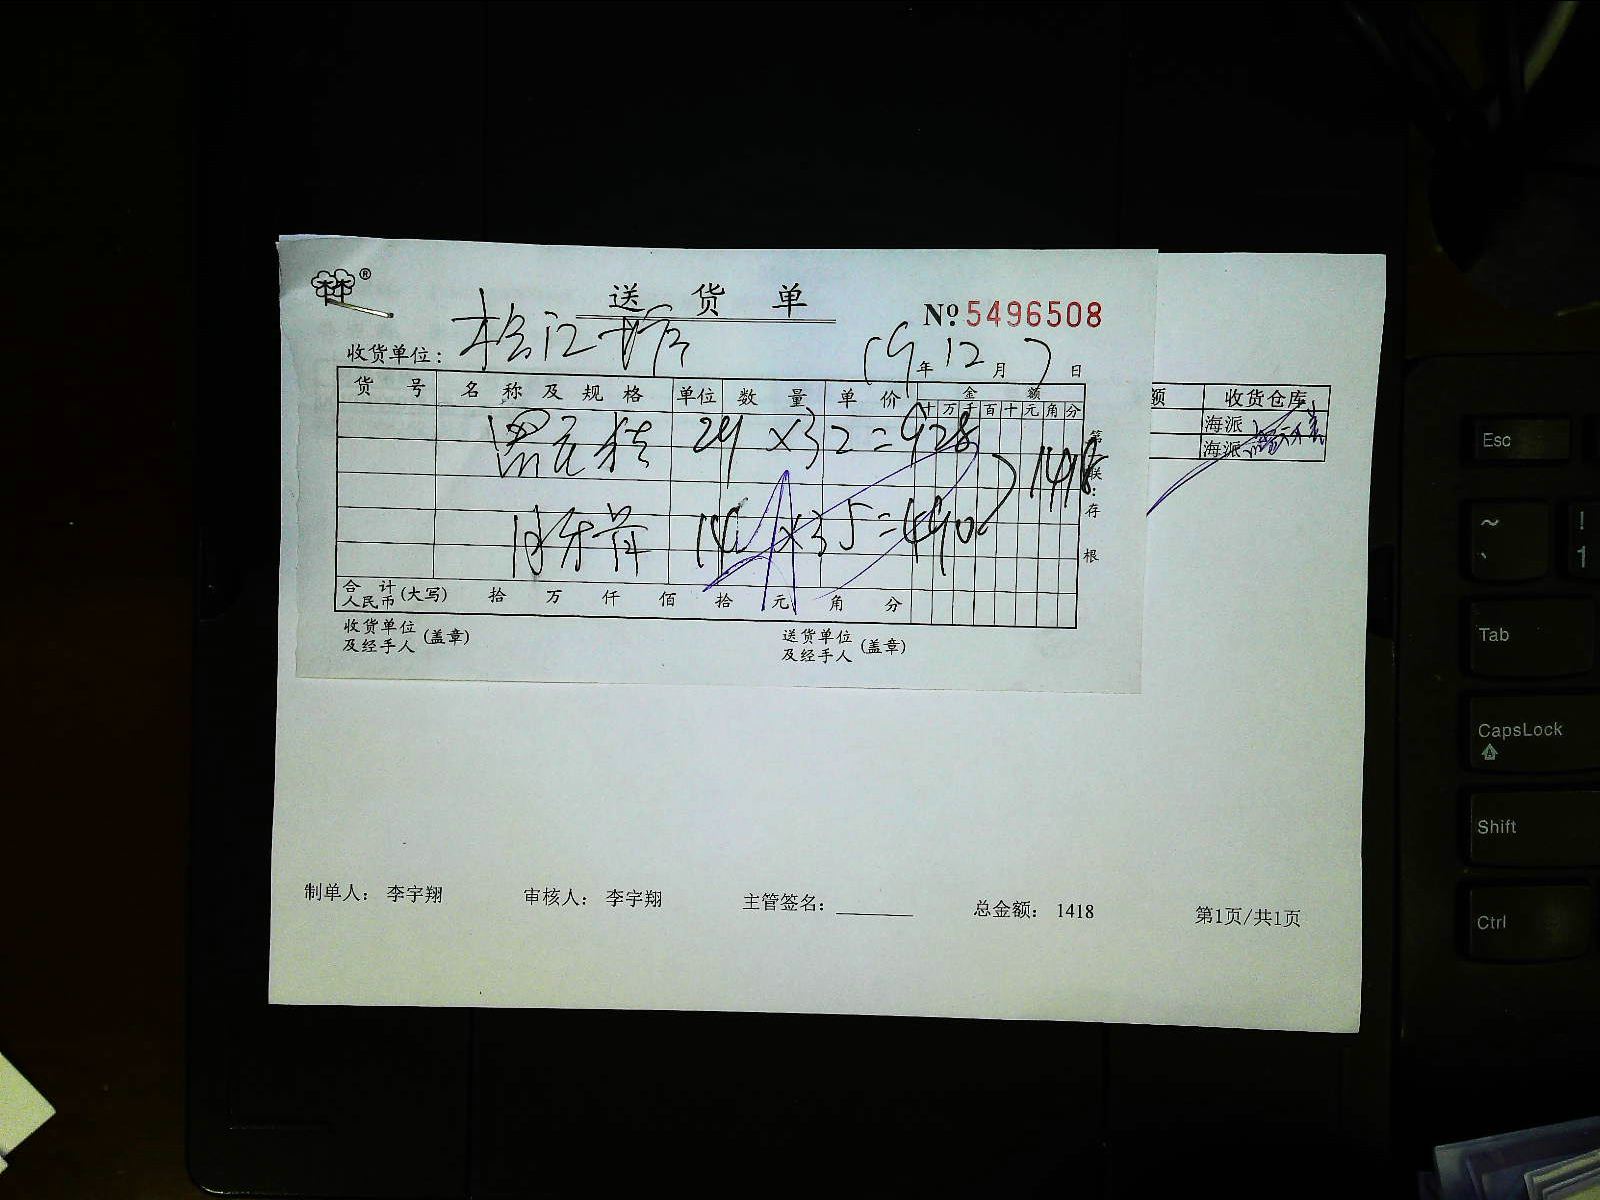 ®
送 货 单
№ 5496508
收货单位: 松江
19年12月7日
货 号 名 称 及 规 格 单位 数 量 单 价 金 额
十 万 千 百 十 元 角 分
29 ×32=928
14 ×35=490
1418
第 联:存 根
合 计 人民币 (大写) 拾 万 仟 佰 拾 元 角 分
收货单位 及经手人 (盖章)
送货单位 及经手人 (盖章)
额 收货仓库
海派
海派
制单人: 李宇翔 审核人: 李宇翔 主管签名: 总金额: 1418 第1页/共1页
Esc
~ `
! 1
Tab
CapsLock
Shift
Ctrl